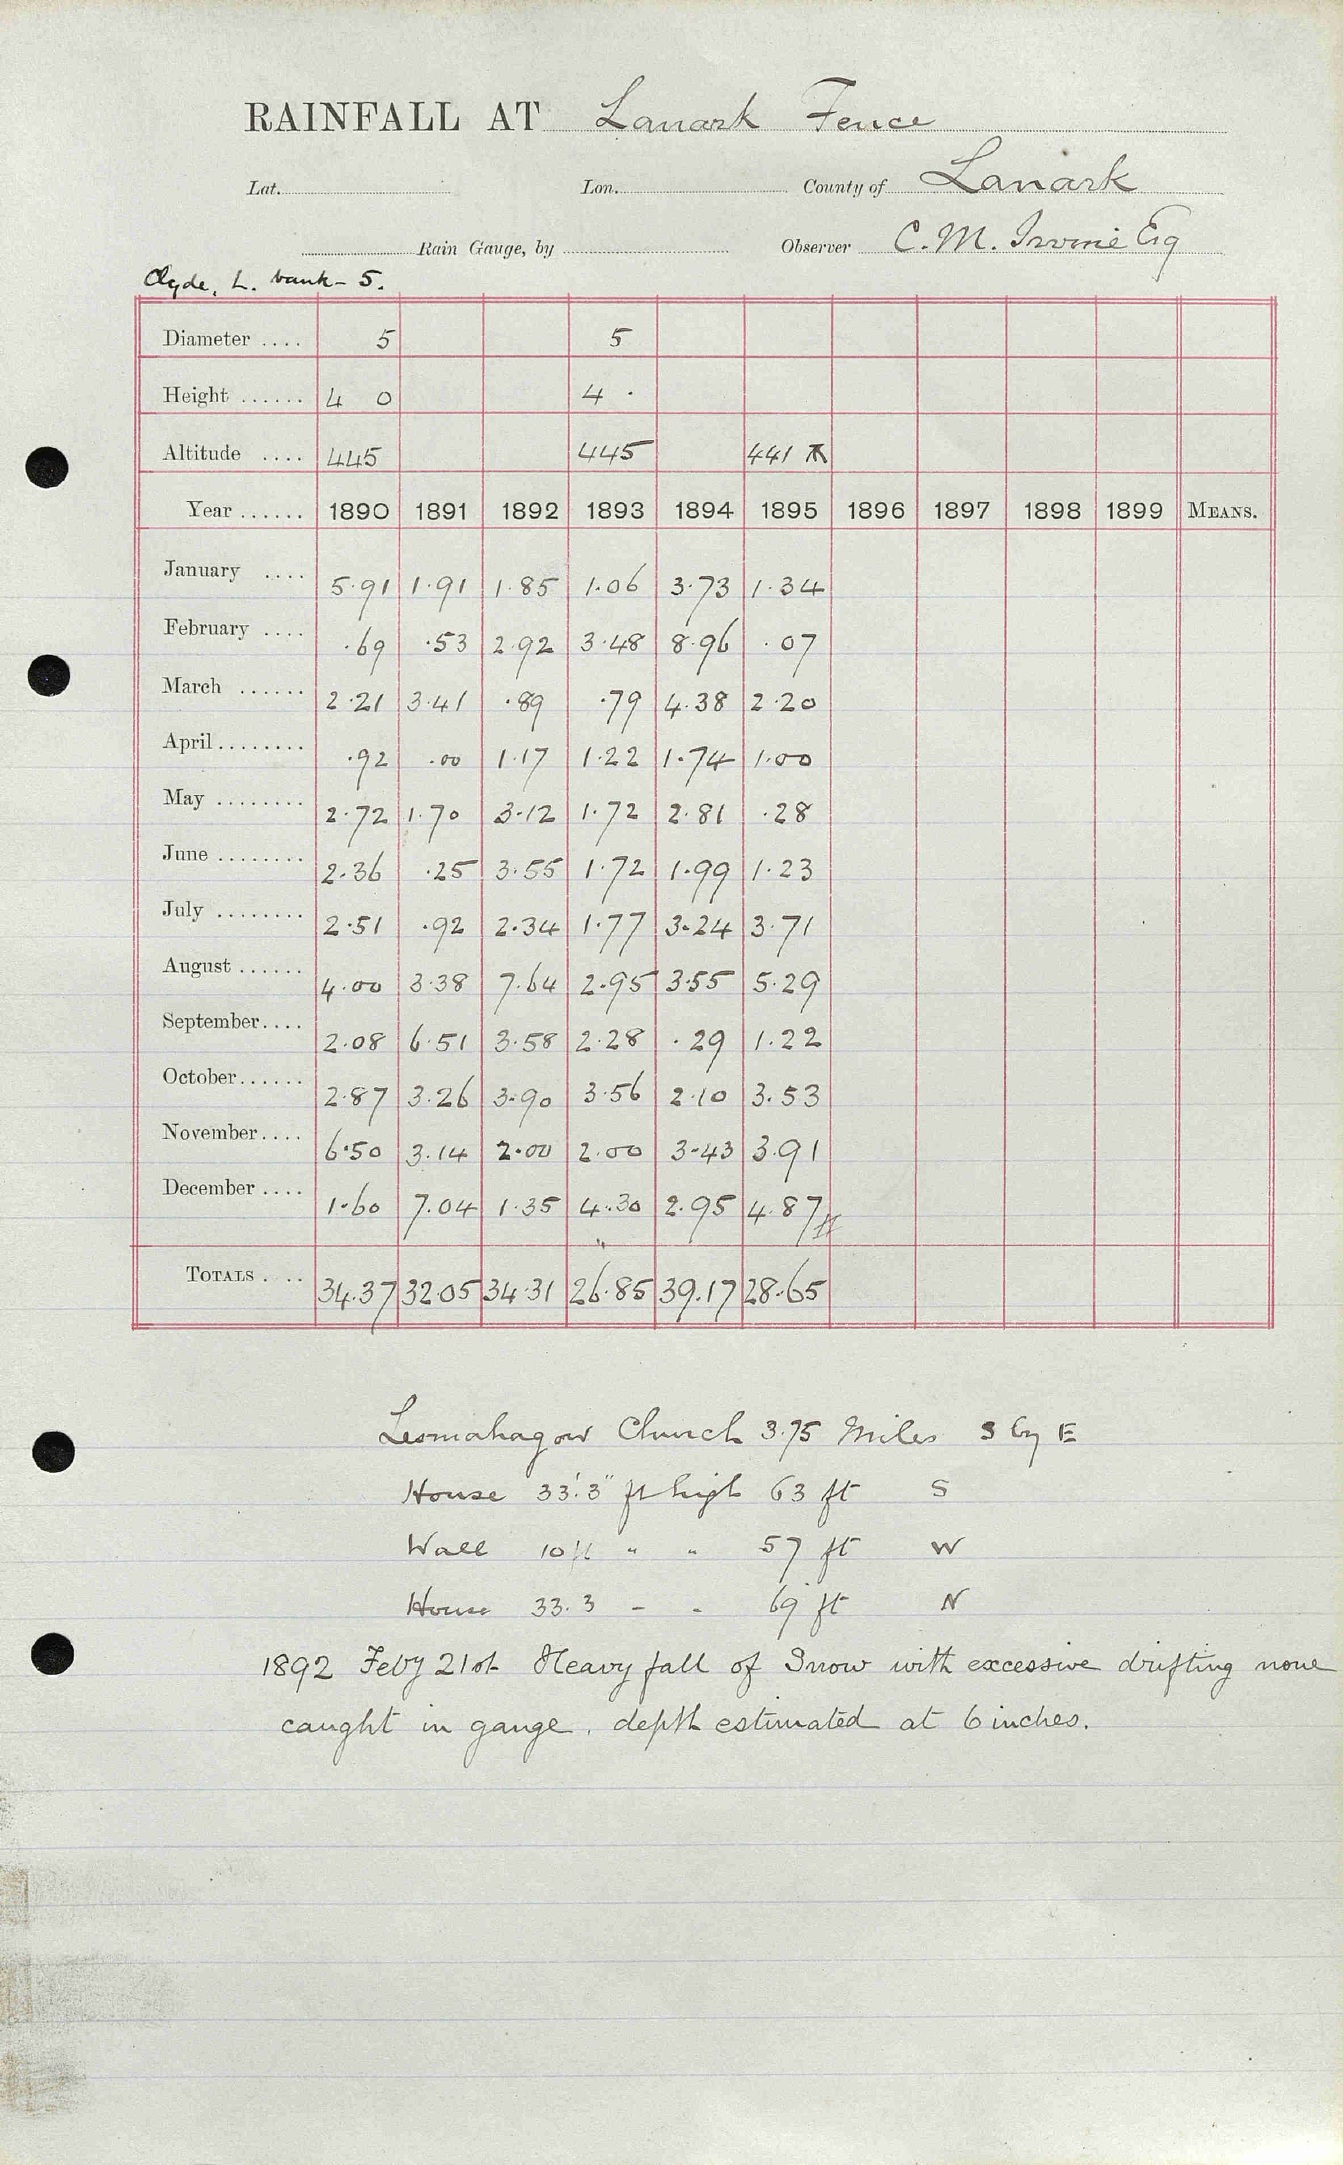 RAINFALL AT Lanark Fence
Lat. Lon. County of Lanark
Rain Gauge, by Observer C. M. Irvine Esq
Clyde, L. bank - 5.
Diameter .... 5 5
Height ...... 4 0 4 ·
Altitude .... 445 445 441
Year ...... 1890 1891 1892 1893 1894 1895 1896 1897 1898 1899 MEANS.
January .... 5.91 1.91 1.85 1.06 3.73 1.34
February .... .69 .53 2.92 3.48 8.96 .07
March ...... 2.21 3.41 .89 .79 4.38 2.20
April........ .92 .00 1.17 1.22 1.74 1.00
May ........ 2.72 1.70 3.12 1.72 2.81 .28
June ........ 2.36 .25 3.55 1.72 1.99 1.23
July ........ 2.51 .92 2.34 1.77 3.24 3.71
August ...... 4.00 3.38 7.64 2.95 3.55 5.29
September.... 2.08 6.51 3.58 2.28 .29 1.22
October...... 2.87 3.26 3.90 3.56 2.10 3.53
November.... 6.50 3.14 2.00 2.00 3.43 3.91
December .... 1.60 7.04 1.35 4.30 2.95 4.87
TOTALS .... 34.37 32.05 34.31 26.85 39.17 28.65
Lesmahagow Church 3.75 Miles S by E
House 33'.3" ft high 63 ft S
Wall 10 ft " " 57 ft W
House 33.3 - - 69 ft N
1892 Feby 21st Heavy fall of Snow with excessive drifting none
caught in gauge, depth estimated at 6 inches.